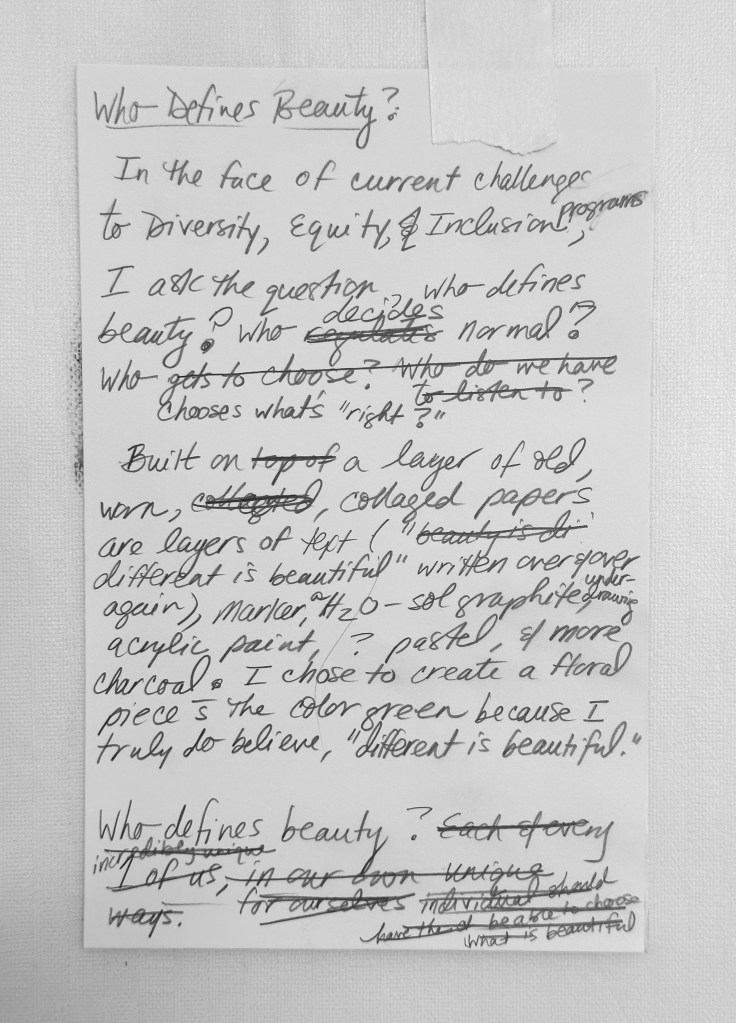 Who Defines Beauty?
In the face of current challenges
to Diversity, Equity, & Inclusion programs,
I ask the question, who defines
decides
beauty? Who regulates normal?
Who gets to choose? Who do we have
to listen to?
chooses what's "right?"
Built on top of a layer of old,
worn, collected, collaged papers
are layers of text ("beauty is di
different is beautiful" written over & over
again), marker, a H2O-sol graphite, under-drawing
acrylic paint, ? pastel, & more
charcoal. I chose to create a floral
piece s̄ the color green because I
truly do believe, "different is beautiful."
Who defines beauty? Each & every
incredibly unique
1 of us, in our own unique
ways. for ourselves individual should
have the able to choose
what is beautiful